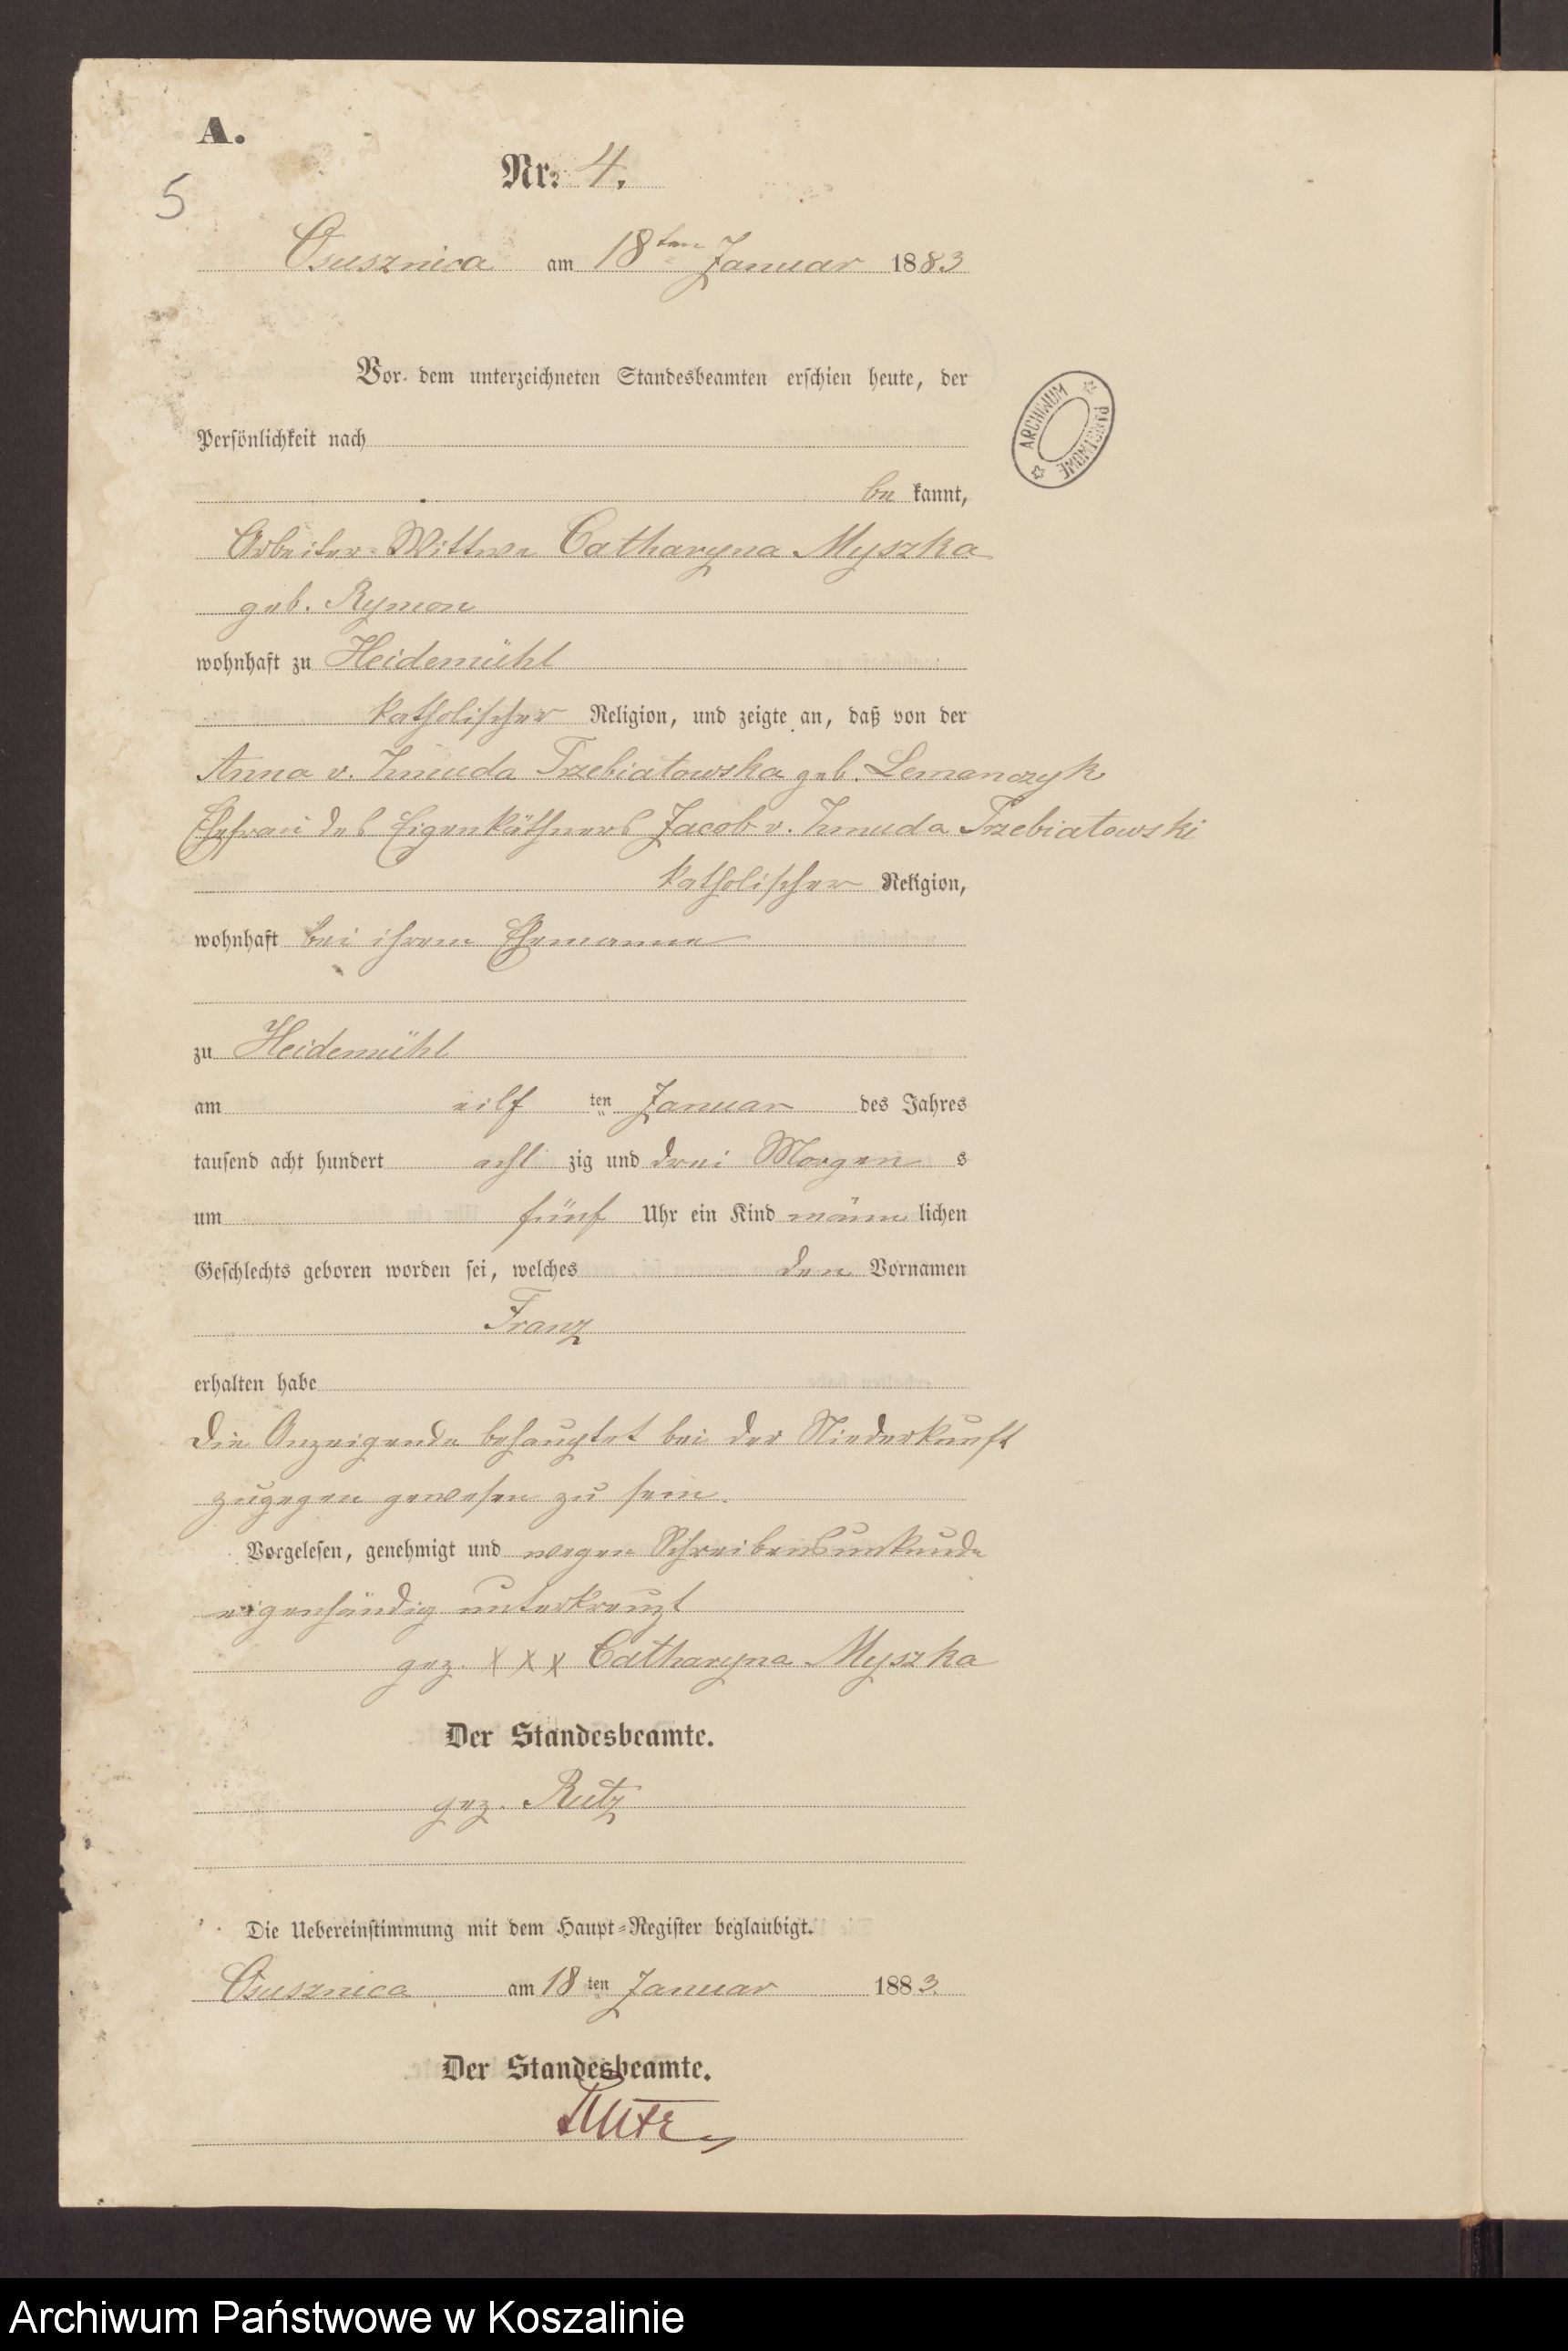 A.
5
Nr. 4.
Osusznica am 18ten Januar 1883
Vor dem unterzeichneten Standesbeamten erschien heute, der
Persönlichkeit nach
be kannt,
Arbeiter-Wittwe Catharyna Myszka
geb. Rymon
wohnhaft zu Heidemühl
katholischer Religion, und zeigte an, daß von der
Anna v. Zmuda Trzebiatowska geb. Lemanczyk
Ehefrau des Eigenkäthners Jacob v. Zmuda Trzebiatowski
katholischer Religion,
wohnhaft bei ihrem Ehemanne
zu Heidemühl
am eilf ten Januar des Jahres
tausend acht hundert acht zig und drei Morgen s
um fünf Uhr ein Kind männ lichen
Geschlechts geboren worden sei, welches den Vornamen
Franz
erhalten habe
Die Anzeigende behauptet bei der Niederkunft
zugegen gewesen zu sein.
Vorgelesen, genehmigt und wegen Schreibensunkunde
eigenhändig unterkreuzt
gez. X X X Catharyna Myszka
Der Standesbeamte.
gez. Rutz
Die Uebereinstimmung mit dem Haupt-Register beglaubigt.
Osusznica am 18 ten Januar 1883.
Der Standesbeamte.
Rutz
ARCHIWUM PAŃSTWOWE
Archiwum Państwowe w Koszalinie